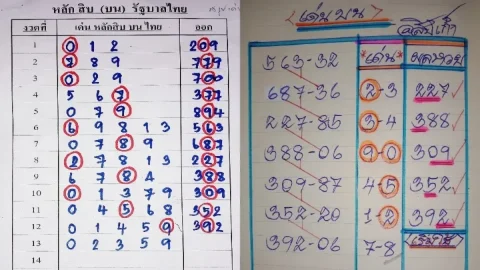 หลัก สิบ (บน) รัฐบาลไทย
งวดที่ เด่น หลักสิบ บน ไทย ออก
1 0 1 2 209
2 7 8 9 779
3 0 2 9 700
4 5 6 7 377
5 0 7 9 894
6 6 9 8 1 3 563
7 0 7 8 9 687
8 2 7 8 1 3 227
9 6 7 8 4 388
10 0 1 3 7 9 309
11 0 4 5 6 8 352
12 0 1 4 5 9 392
13 0 2 3 5 9
14
เด่นบน
*เด่น*
563-32
687-36 2-3 227
227-85 3-4 388
388-06 9-0 309
309-87 4-5 352
352-20 1-2 392
392-06 7-8